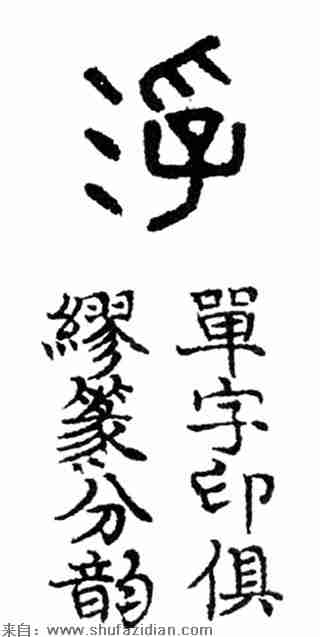 浮
單字印俱
繆篆分韵
来自：www.shufazidian.com